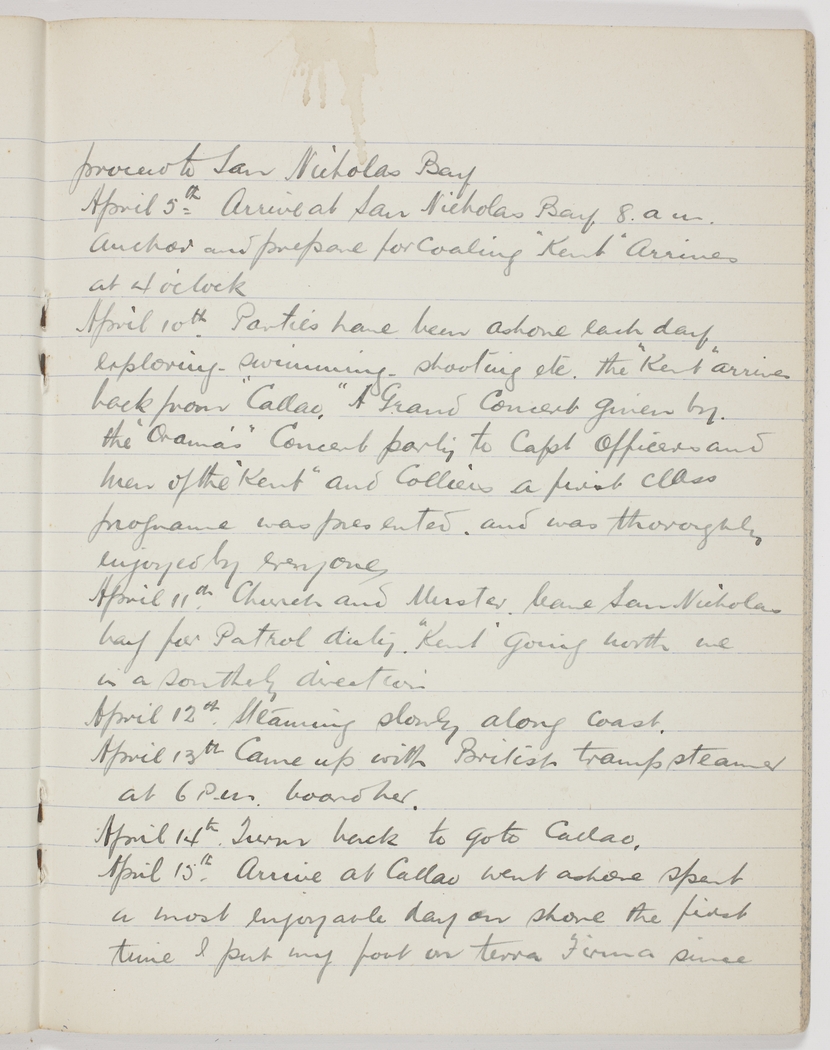 proceed to San Nicholas Bay
April 5th Arrive at San Nicholas Bay 8. a m.
Anchor and prepare for Coaling "Kent" Arrives
at 4 o'clock
April 10th. Parties have been ashore each day
exploring - swimming - shooting etc. the "Kent" arrives
back from "Callao," A Grand Concert given by.
the "Orama's" Concert party to Capt Officers and
men of the "Kent" and Colliers a first class
programe was presented. and was thoroughly
enjoyed by everyone,
April 11th. Church and Muster. leave San Nicholas
bay for Patrol duty. "Kent" going north we
in a southely direction
April 12th. Steaming slowly along coast.
April 13th Came up with British tramp steamer
at 6 P.m. board her.
April 14th. Turn back to go to Callao.
April 15th. Arrive at Callao went ashore spent
a most enjoyable day on shore the first
time I put my foot on terra Firma since